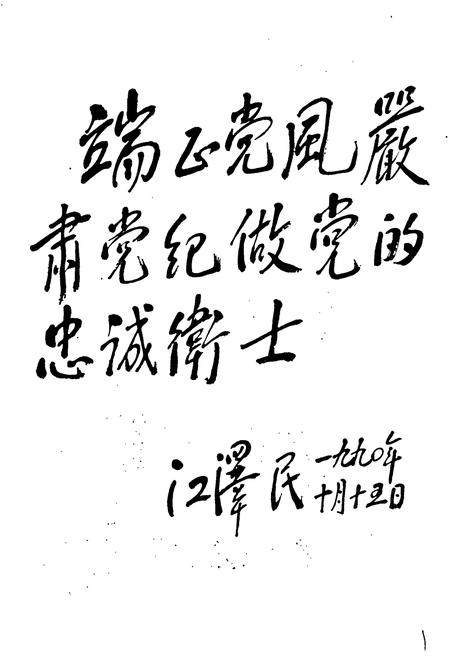 端正党風嚴
肅党纪做党的
忠诚衛士
江澤民 一九九〇年
十月十五日